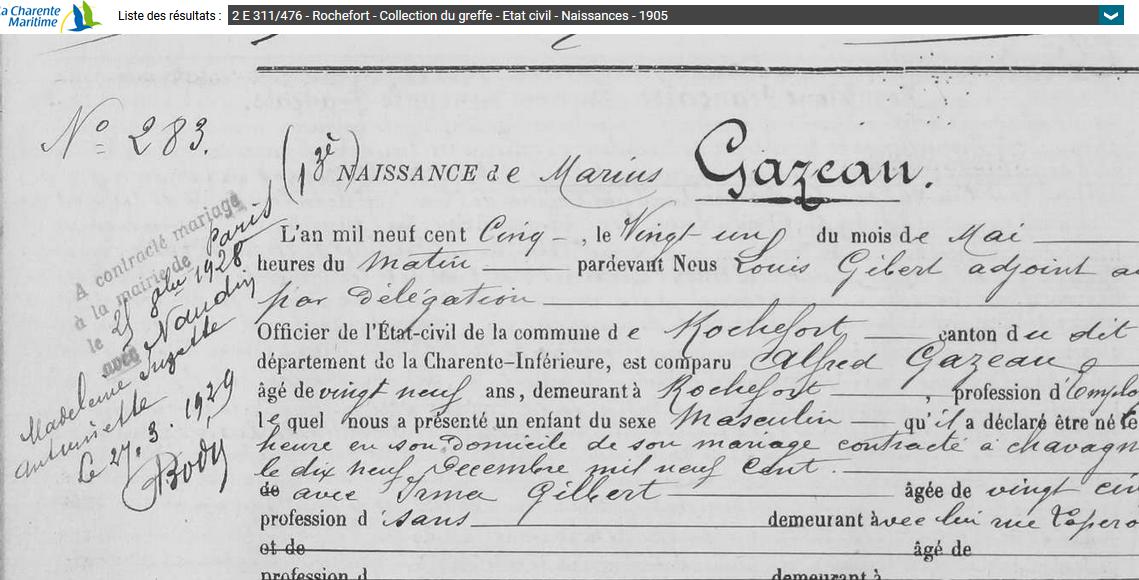 La Charente
Maritime
Liste des résultats :
2 E 311/476 - Rochefort - Collection du greffe - Etat civil - Naissances - 1905
N° 283.
(13è) NAISSANCE de Marius Gazeau.
A contracté mariage
à la mairie de Paris
le 25 8bre 1928
avec Naudin
Madeleine Suzette
Antoinette
Le 27. 3. 1929
L'an mil neuf cent Cinq, le Vingt un du mois de Mai
heures du matin pardevant Nous Louis Gibert adjoint
par délégation
Officier de l'État-civil de la commune de Rochefort canton du dit
département de la Charente-Inférieure, est comparu Alfred Gazeau
âgé de vingt neuf ans, demeurant à Rochefort, profession d'Emplo
lequel nous a présenté un enfant du sexe Masculin qu'il a déclaré être né
heure en son domicile de son mariage contracté à chavagn
le dix neuf Decembre mil neuf Cent.
de avec Irma Gilbert âgée de vingt cin
profession d sans demeurant avec lui rue Lapero
et de âgé de
profession d demeurant à